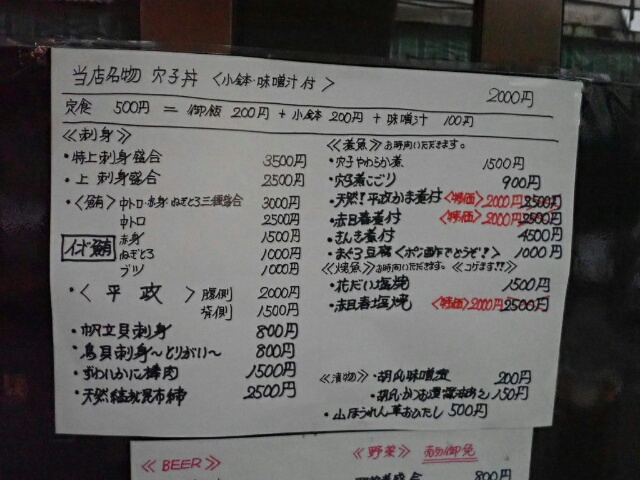 当店名物 穴子丼 〈小鉢・味噌汁付〉 2000円
定食 500円 = 御飯 200円 + 小鉢 200円 + 味噌汁 100円
≪刺身≫
・特上刺身盛合 3500円
・上 刺身盛合 2500円
・〈鮪〉中トロ・赤身・ねぎとろ三種盛合 3000円
中トロ 2500円
赤身 1500円
インド鮪 ねぎとろ 1000円
ブツ 1000円
・〈平政〉腹側 2000円
背側 1500円
・帆立貝刺身 800円
・鳥貝刺身〜とりがい〜 800円
・ずわいかに棒肉 1500円
・天然 昆布〆 2500円
≪煮魚≫お時間いただきます。
・穴子やわらか煮 1500円
・穴子煮こごり 900円
・天然!平政かま煮付〈特価〉2000円 2500円
・赤目春煮付〈特価〉2000円 2500円
・きんき煮付 4500円
・まぐろ豆腐〈ポン酢でどうぞ!〉1000円
≪焼魚≫お時間いただきます。≪コゲます!!≫
・花だい塩焼 1500円
・赤目春塩焼〈特価〉2000円 2500円
≪漬物≫・胡瓜味噌 200円
・胡瓜かつお漬 150円
・山ほうれん草おひたし 500円
≪BEER≫
≪野菜≫
800円